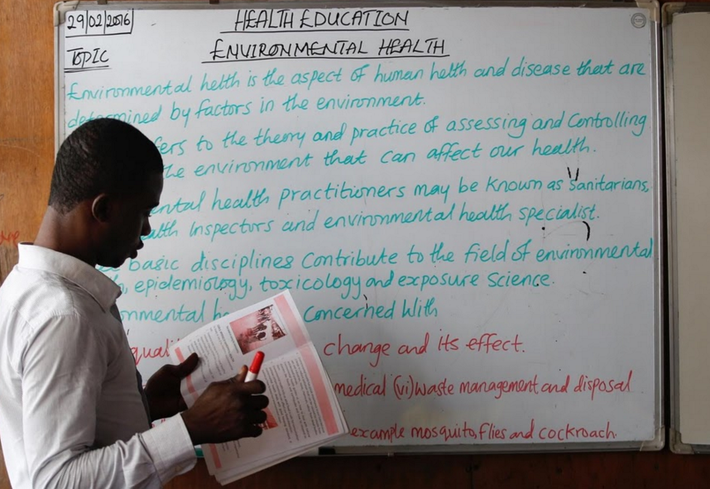 29/02/2016
HEALTH EDUCATION
TOPIC
ENVIRONMENTAL HEALTH
Environmental helth is the aspect of human helth and disease that are
determined by factors in the environment.
fers to the theory and practice of assessing and Controlling
the environment that can affect our health.
ental health practitioners may be known as Sanitarians,
alth Inspectors and environmental health specialist.
basic disciplines Contribute to the field of environmental
epidemiology, toxicology and exposure Science.
nmental he Concerned With
quali change and its effect.
medical (vi) waste management and disposal
example mosquito, flies and cockroach